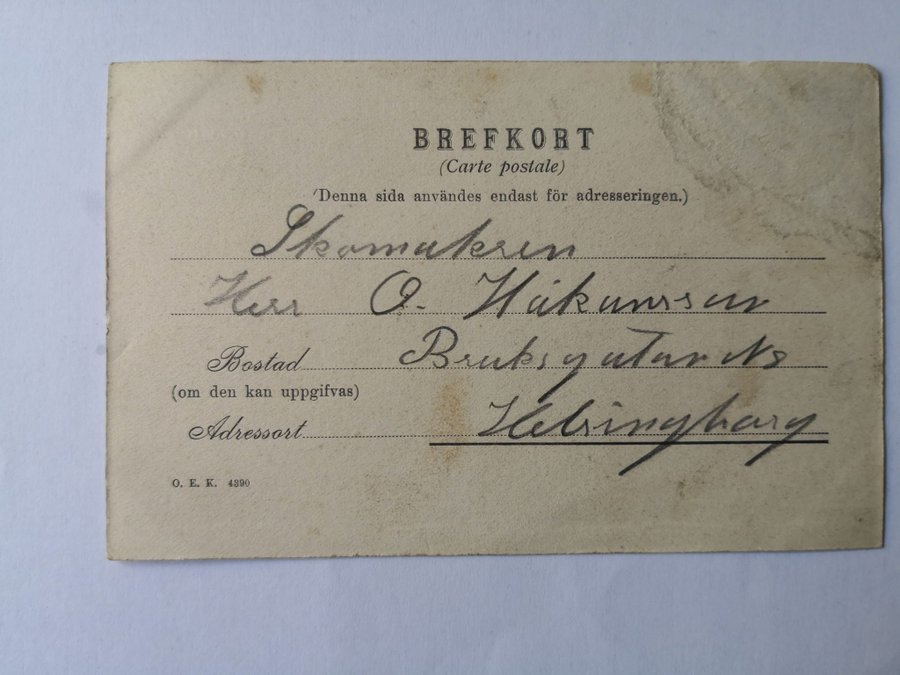 BREFKORT
(Carte postale)
(Denna sida användes endast för adresseringen.)
Skomakren
Herr O. Håkansson
Bostad Bruksgatan No
(om den kan uppgifvas)
Adressort Helsingborg
O. E. K. 4390